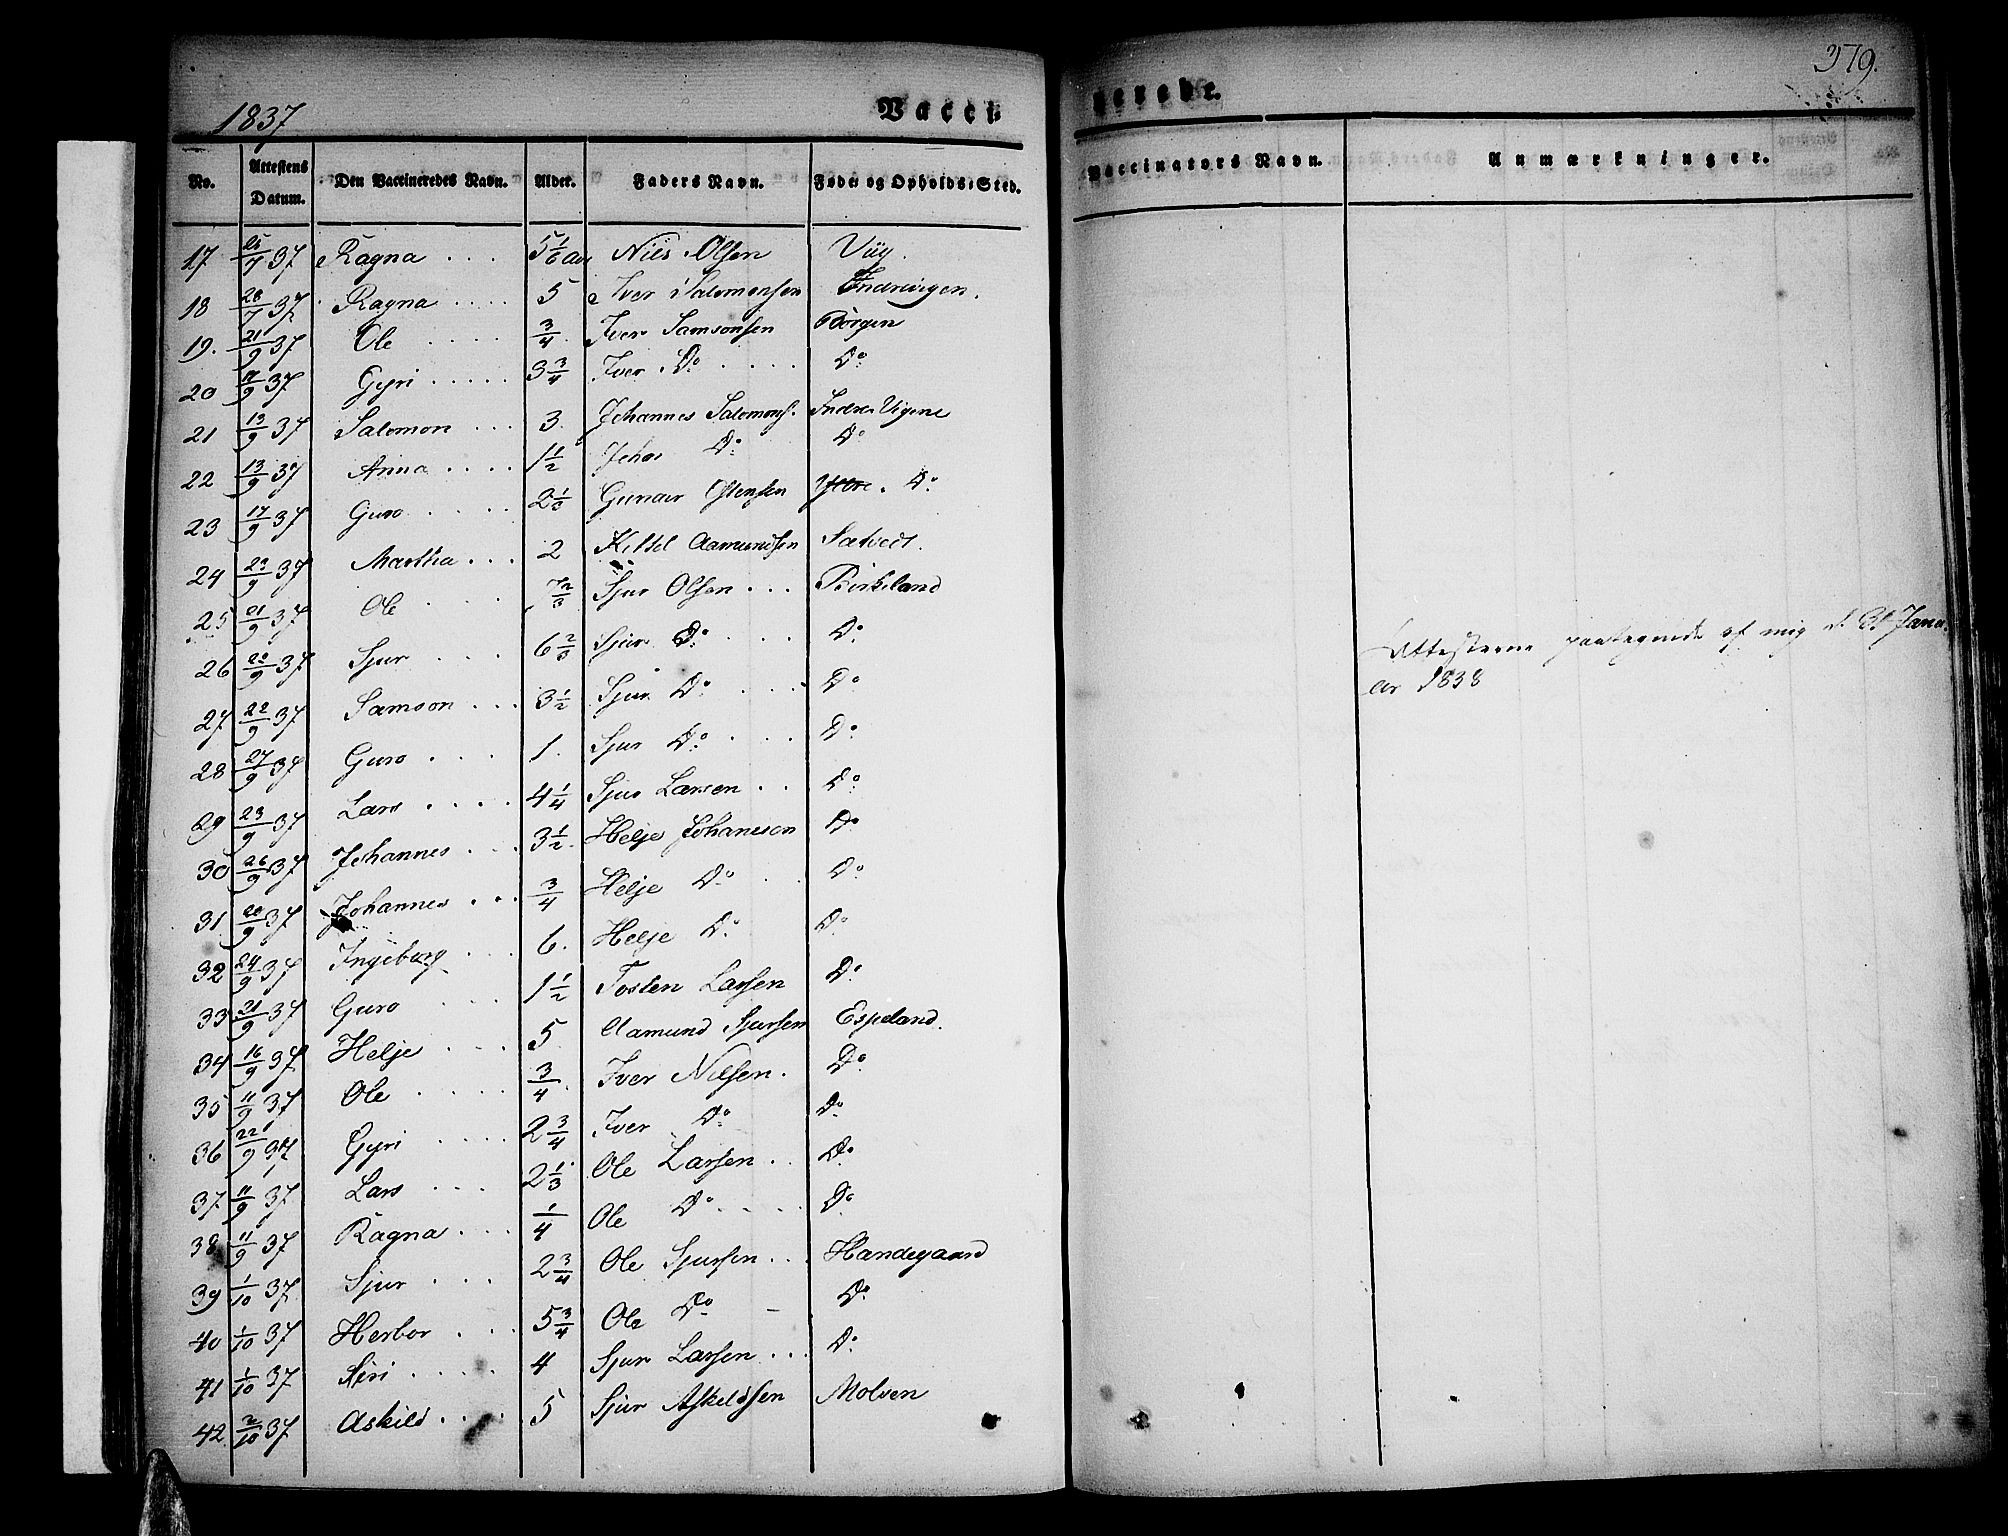 379.
1837
Vacci-
nerede.
No. Attestens Datum. Den Vaccineredes Navn. Alder. Faders Navn. Føde- og Opholds-Sted. Vaccinators Navn. Anmærkninger.
17 25/7 37 Ragna . . . 5 1/6 Nils Olsen
18 28/7 37 Ragna . . . . 5 Iver Salomonsen
19. 21/9 37 Ole . . . . 3/4 Iver Samsonsen Børgen
20 18/9 37 Gyri . . . . . 3 3/4 Iver Do . . . . . Do
21 13/9 37 Salomon . . . 3. Johannes Salomons. Indre Vigene
22 13/9 37 Anna . . . . 1 1/2 Johas Do Do
23 17/9 37 Guro . . . . 2 1/3 Gunar Do
24 23/9 37 Martha . . . 2 Kittel Aamundsen Sætvedt.
25 21/9 37 Ole . . . 7 2/3 Sjur Olsen . . . Birkeland
26 20/9 37 Sjur . . . . 6 2/3 Sjur Do . . . . Do
27 22/9 37 Samson . . . 3 1/2 Sjur Do . . . . Do
28 27/9 37 Guro . . . 1. Sjur Do . . . . Do
29 23/9 37 Lars . . . . . 4 1/4 Sjur Larsen . . Do
30 26/9 37 Johannes . . . 3 1/2 Helje Johanesen Do
31 20/9 37 Johannes . . . 3/4 Helje Do . . Do
32 24/9 37 Ingeborg . . . 6. Helje Do Do
33 21/9 37 Guro . . . 1 1/2 Tosten Larsen Do
34 16/9 37 Helje . . . 5 Aamund Sjursen Espeland.
35 11/9 37 Ole . . . . . 3/4 Iver Nilsen. Do
36 22/9 37 Gyri . . . . 2 3/4 Iver Do Do
37. 11/9 37 Lars . . . . 2 1/3 Ole Larsen . . Do
38 11/9 37 Ragna . . . 1/4 Ole Do . . . . Do
39 1/10 37 Sjur . . . 2 3/4 Ole Sjursen . . . Handegaard
40 1/10 37 Herbor . . . 5 3/4 Ole Do Do
41 1/10 37 Siri . . . . . 4 Sjur Larsen . . . Do
42 2/10 37 Askild . . . . 5 Sjur Askeldsen Molven
Attesterne paategnede af mig d. 31 Janu-
ar 1838